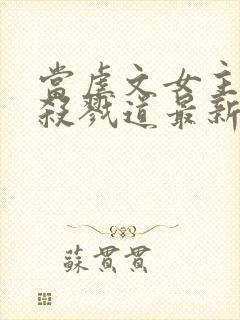 當虐文女主
殺戮道最新
蘇貫貫